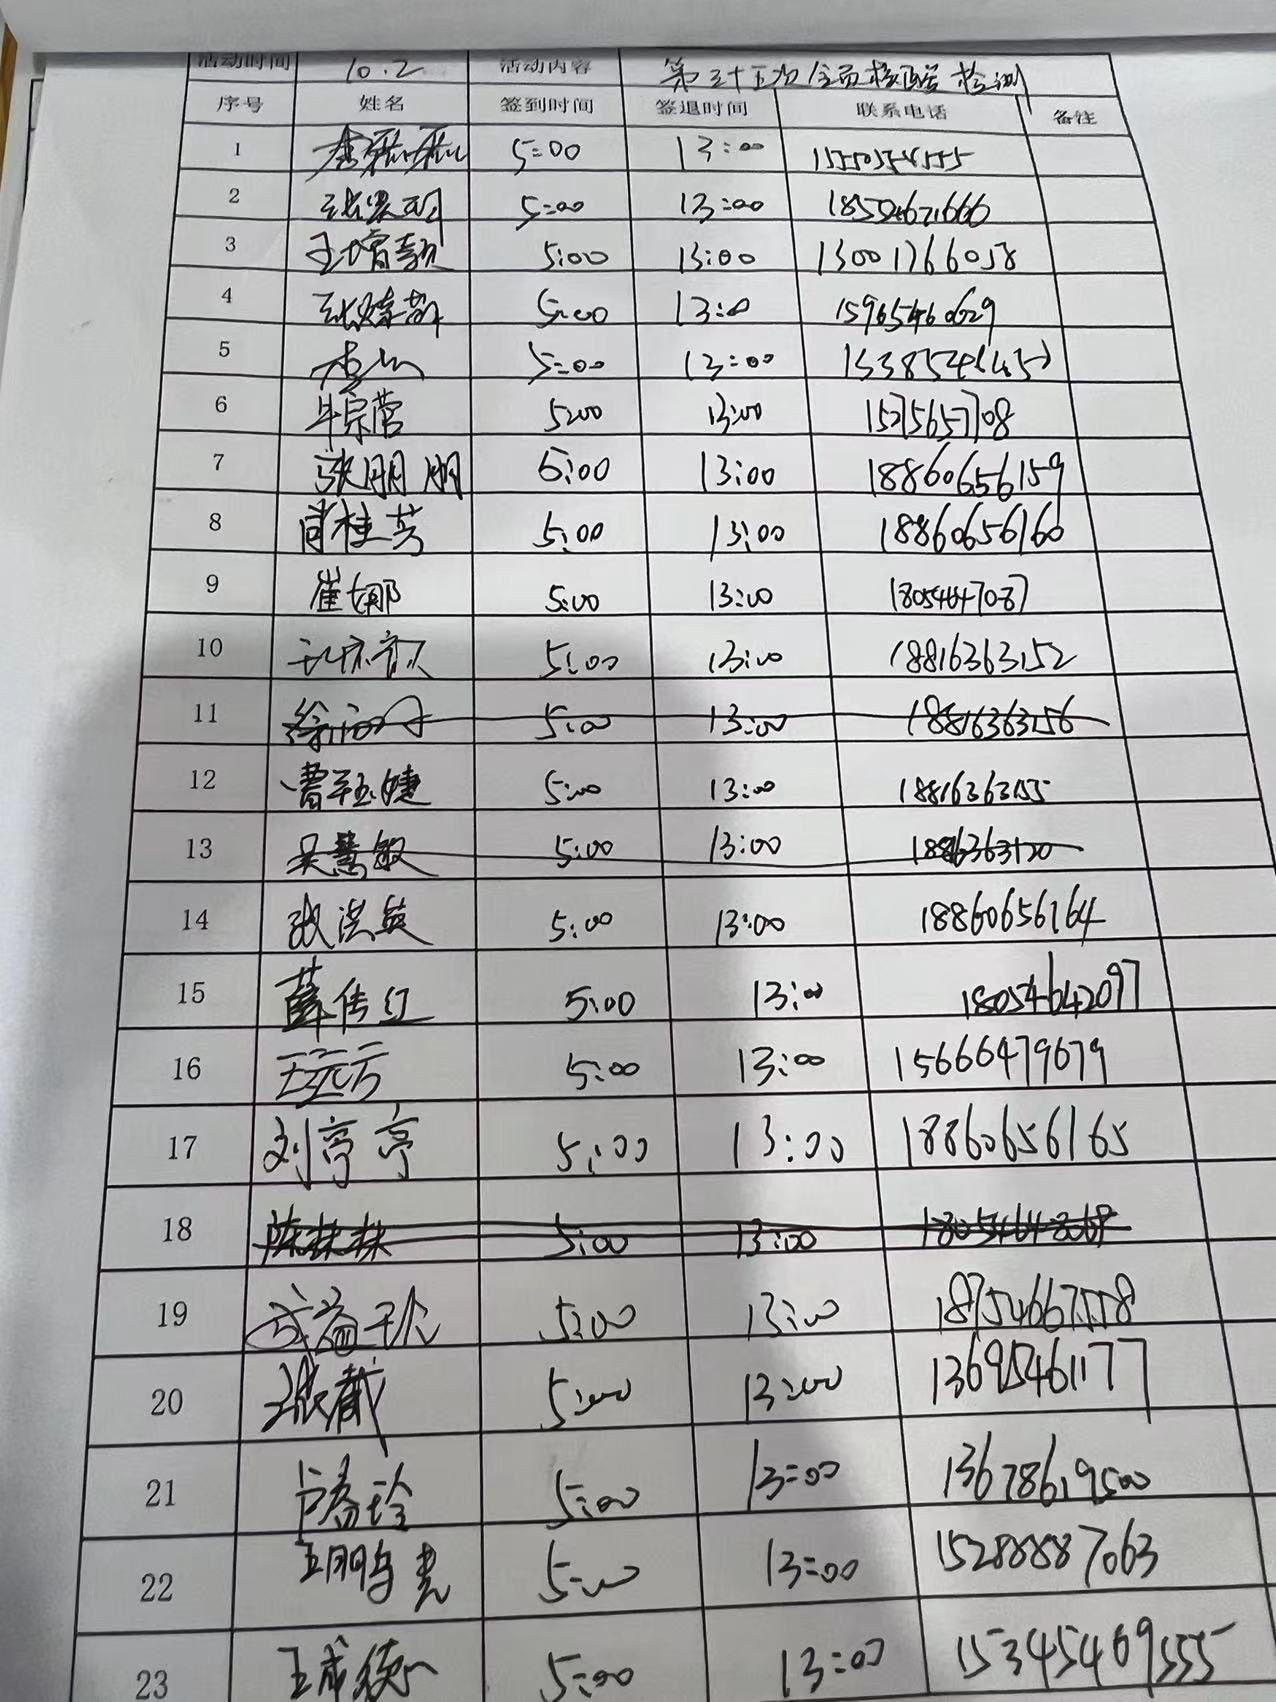 活动时间 10.2 活动内容 第三十五次全员核酸检测
序号 姓名 签到时间 签退时间 联系电话 备注
1 5:00 13:00
2 5:00 13:00 18554671666
3 王增 5:00 13:00 13001766058
4 5:00 13:00 15965460629
5 5:00 13:00
6 牛宗营 5:00 13:00 15275657708
7 张朋朋 5:00 13:00 18860656159
8 肖桂芳 5:00 13:00 18860656160
9 崔娜 5:00 13:00 18054647087
10 5:00 13:00 18816363152
11 5:00 13:00 18816363156
12 曹玉婕 5:00 13:00 18816363155
13 吴慧敏 5:00 13:00
14 张洪英 5:00 13:00 18860656164
15 薛传红 5:00 13:00 18054642097
16 王远方 5:00 13:00 15666479679
17 刘亭亭 5:00 13:00 18860656165
18 陈姝姝 5:00 13:00 18054648068
19 5:00 13:00 18754667558
20 张戴 5:00 13:00 13695461177
21 卢春玲 5:00 13:00 13678619500
22 王鹏 5:00 13:00 15288887063
23 王成德 5:00 13:00 15345469555